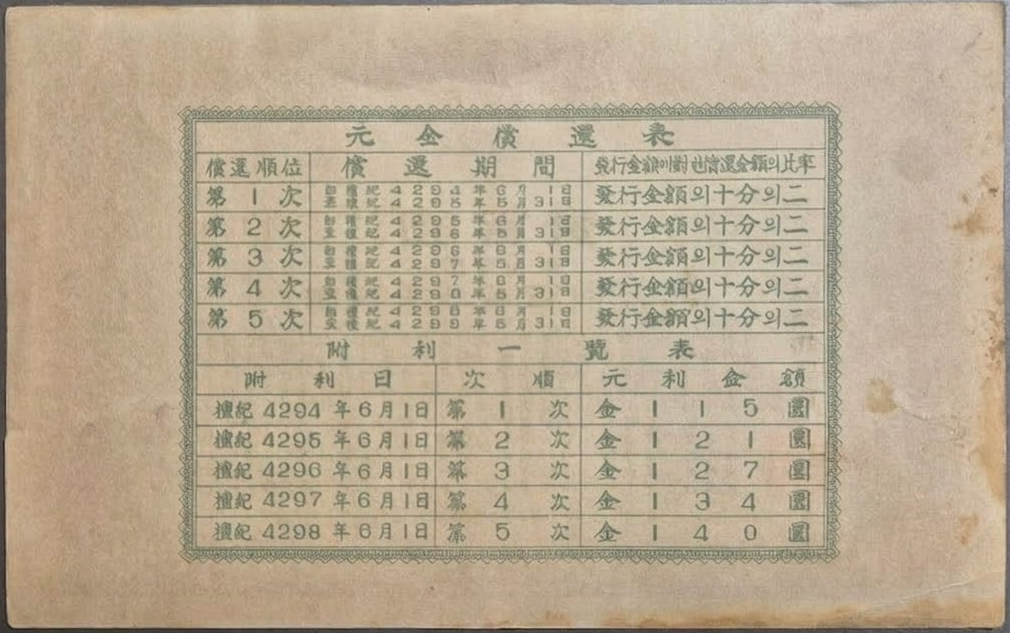 元金償還表
償還順位 償還期間 發行金額에對한償還金額의比率
第1次 自檀紀4294年6月1日 至檀紀4295年5月31日 發行金額의十分의二
第2次 自檀紀4295年6月1日 至檀紀4296年5月31日 發行金額의十分의二
第3次 自檀紀4296年6月1日 至檀紀4297年5月31日 發行金額의十分의二
第4次 自檀紀4297年6月1日 至檀紀4298年5月31日 發行金額의十分의二
第5次 自檀紀4298年6月1日 至檀紀4299年5月31日 發行金額의十分의二
附利一覽表
附利日 次順 元利金額
檀紀4294年6月1日 第1次 金115圜
檀紀4295年6月1日 第2次 金121圜
檀紀4296年6月1日 第3次 金127圜
檀紀4297年6月1日 第4次 金134圜
檀紀4298年6月1日 第5次 金140圜